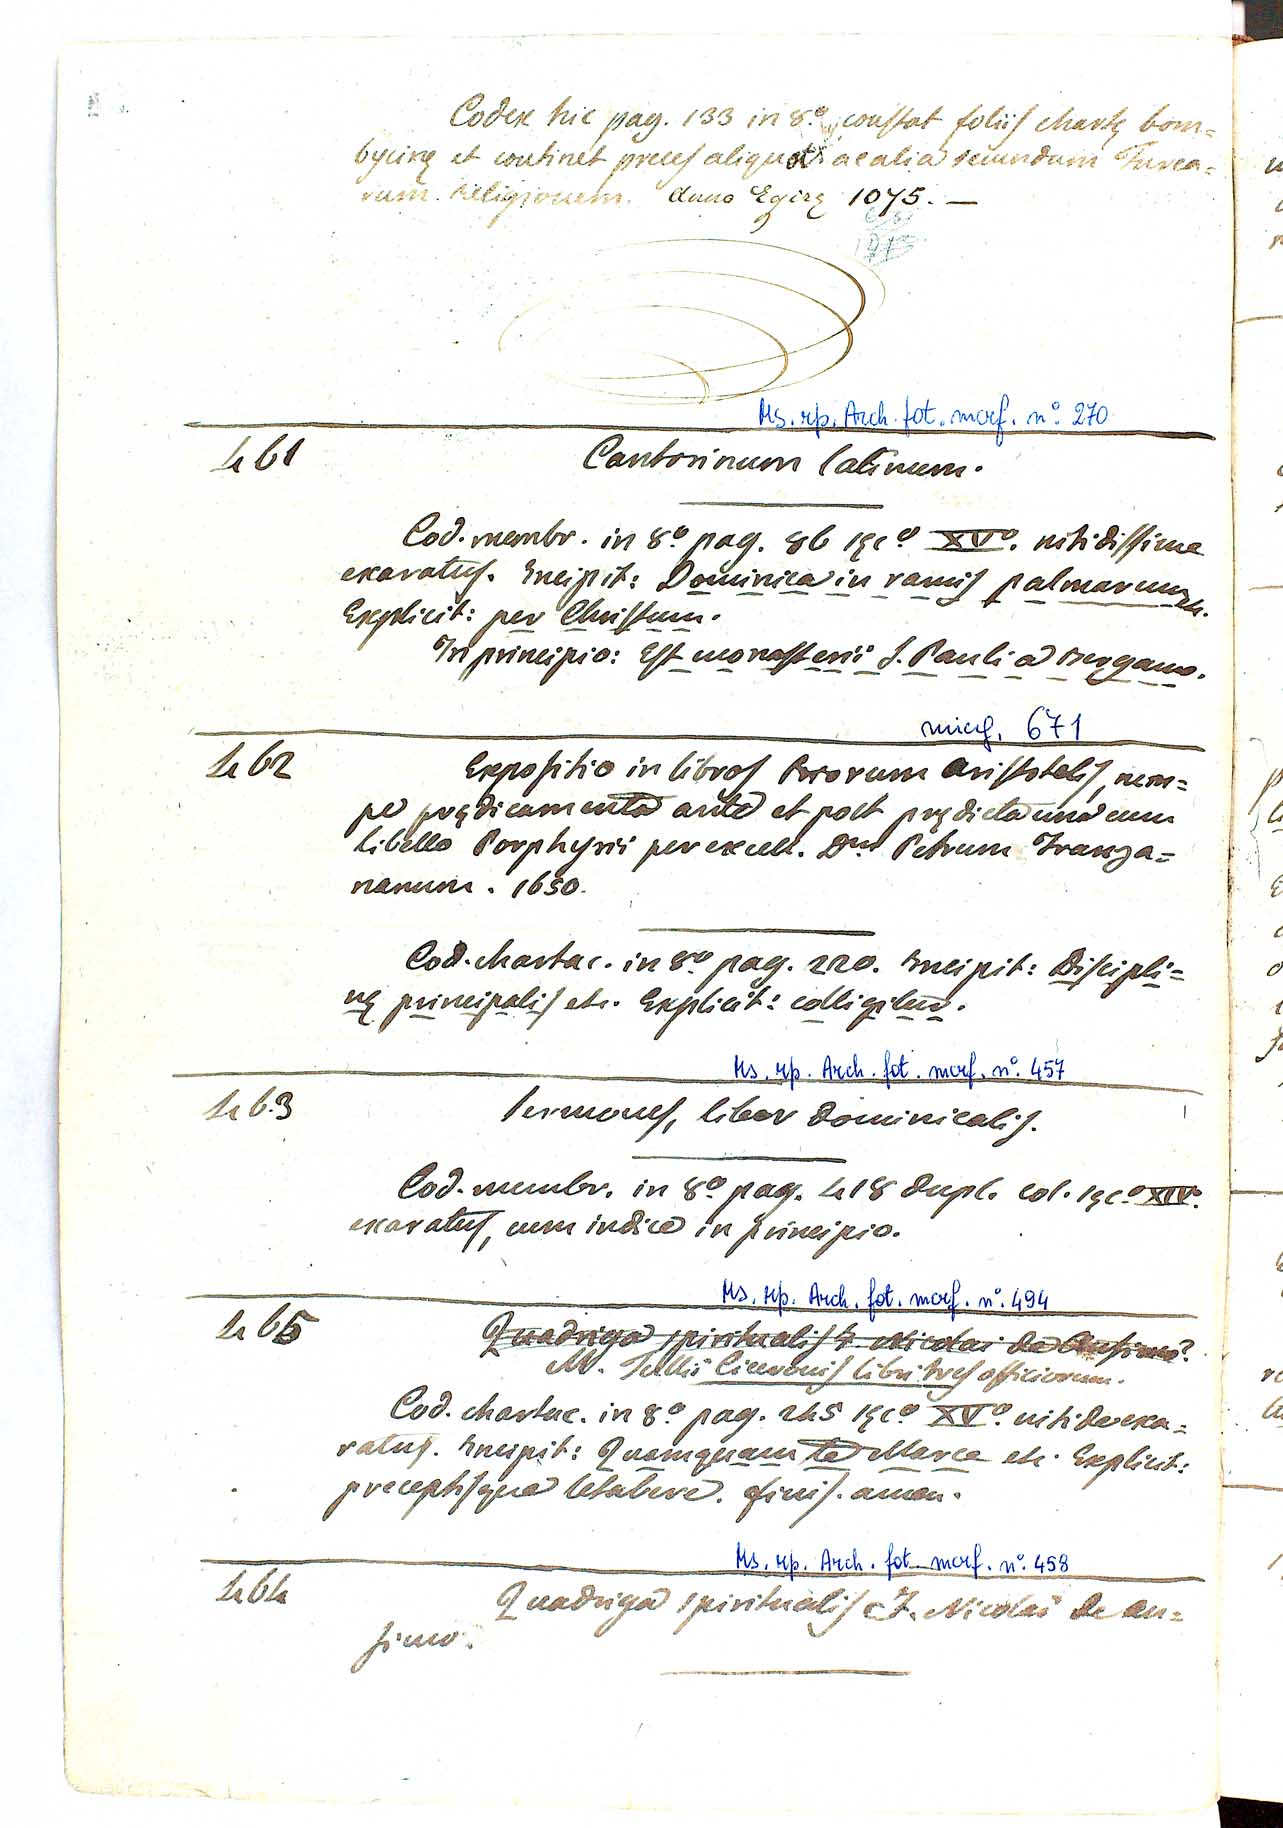 Codex hic pag. 133 in 8.º constat foliis chartę bom=
bycinę et continet preces aliquot ac alia secundum Turca=
rum religionem. Anno Egirę 1075. —
Ms. rip. Arch. fot. mcrf. nº. 270
461 Cantorinum latinum.
Cod. membr. in 8º pag. 86 sęcº XVº. nitidissime
exaratus. Incipit: Dominica in ramis palmarum
Explicit: per Christum.
In principio: Est monasterii S. Pauli a Bergamo.
micf. 671
462 Expositio in libros Priorum Aristotelis, nem=
pe prędicamenta ante et post prędicta una cum
libello Porphyrii per excell. Dnm Petrum Franza=
nanum. 1650.
Cod. chartac. in 8º pag. 220. Incipit: Discipli=
nę principalis etc. Explicit: colligitur.
Ms. rip. Arch. fot. mcrf. nº. 457
463 Sermones, liber dominicalis.
Cod. membr. in 8º pag. 418 dupl. col. sęcº XIVº.
exaratus, cum indice in principio.
Ms. rip. Arch. fot. mcrf. nº. 494
465 Quadriga spiritualis F. Nicolai de Ausimo?
M. Tullii Ciceronis libri tres officiorum.
Cod. chartac. in 8º pag. 245 sęcº XVº. nitide exa=
ratus. Incipit: Quamquam te Marce etc. Explicit:
preceptisque letabere. finis. amen.
Ms. rip. Arch. fot. mcrf. nº. 458
464 Quadriga spiritualis F. Nicolai de Au=
simo.